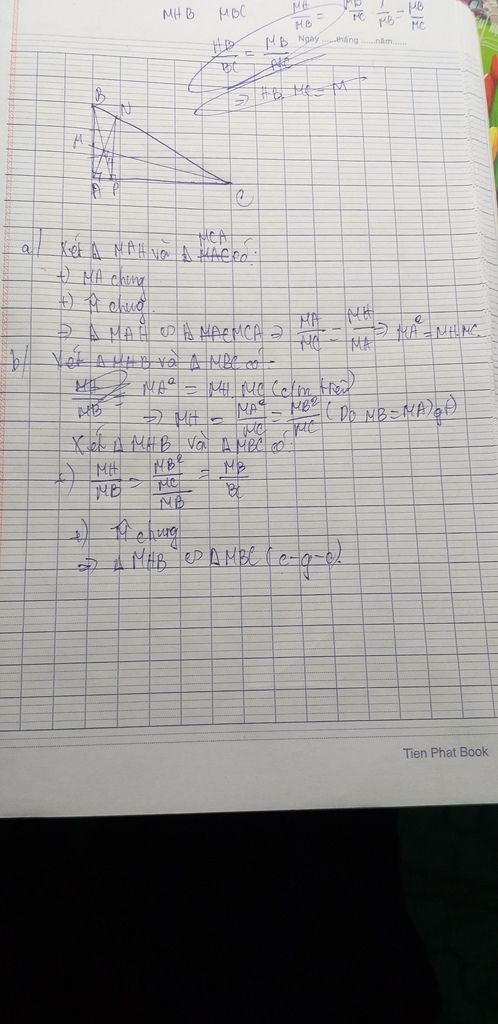 MHB MBC MH/MB = MB/MC 1/MB = MB/MC
Ngày ......tháng ......năm......
HB/BC = MB/MC
⇒ HB. MC = M
B
N
M
A P
C
MCA
a/ Xét Δ MAH và Δ MAC có:
+) MA chung
+) M̂ chung
⇒ Δ MAH ∽ Δ MAC MCA ⇒ MA/MC = MH/MA ⇒ MA² = MH.MC.
b/ Xét Δ MHB và Δ MBC có:
MH/MB = MA² = MH. MC (c/m trên)
⇒ MH = MA²/MC = MB²/MC (Do MB = MA) gt)
Xét Δ MHB và Δ MBC có:
+) MH/MB = MB²/MC/MB = MB/BC
+) M̂ chung
⇒ Δ MHB ∽ Δ MBC (c-g-c).
Tien Phat Book